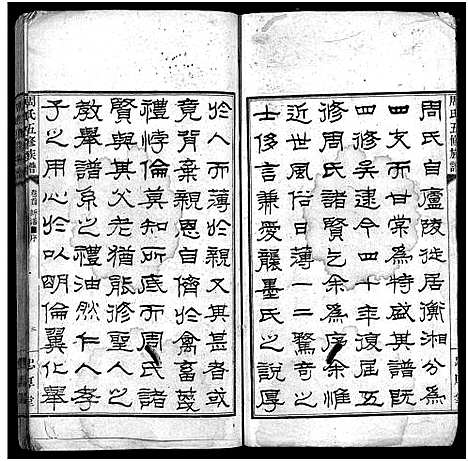 周氏自廬陵徙居衡湘分為
四支而甘棠為特盛其譜既
四修矣逮今四十年復屆五
修周氏諸賢乞余為序余惟
近世風俗日薄一二驚奇之
士侈言兼愛襲墨氏之說厚
於人而薄於親又其甚者或
竟背棄親恩自儕於禽畜蔑
禮悖倫莫知所底而周氏諸
賢與其父老猶能修聖人之
教舉譜系之禮油然仁人孝
子之用心足以明倫翼化舉
周氏五修族譜
卷首 新譜 序
二
忠厚堂
周氏五修族譜